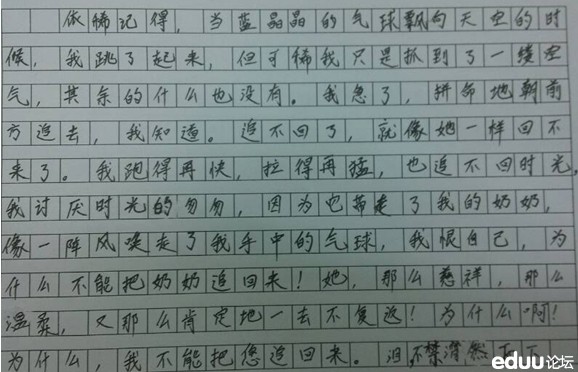 依稀记得，当蓝晶晶的气球飘向天空的时
候，我跳了起来，但可稀我只是抓到了一缕空
气，其余的什么也没有。我急了，拼命地朝前
方追去，我知道。追不回了，就像她一样回不
来了。我跑得再快，拉得再猛，也追不回时光，
我讨厌时光的匆匆，因为它带走了我的奶奶，
像一阵风唉走了我手中的气球，我恨自己，为
什么不能把奶奶追回来！她，那么慈祥，那么
温柔，又那么肯定地一去不复返！为什么啊！
为什么，我不能把您追回来。泪不禁潸然下下
eduu论坛